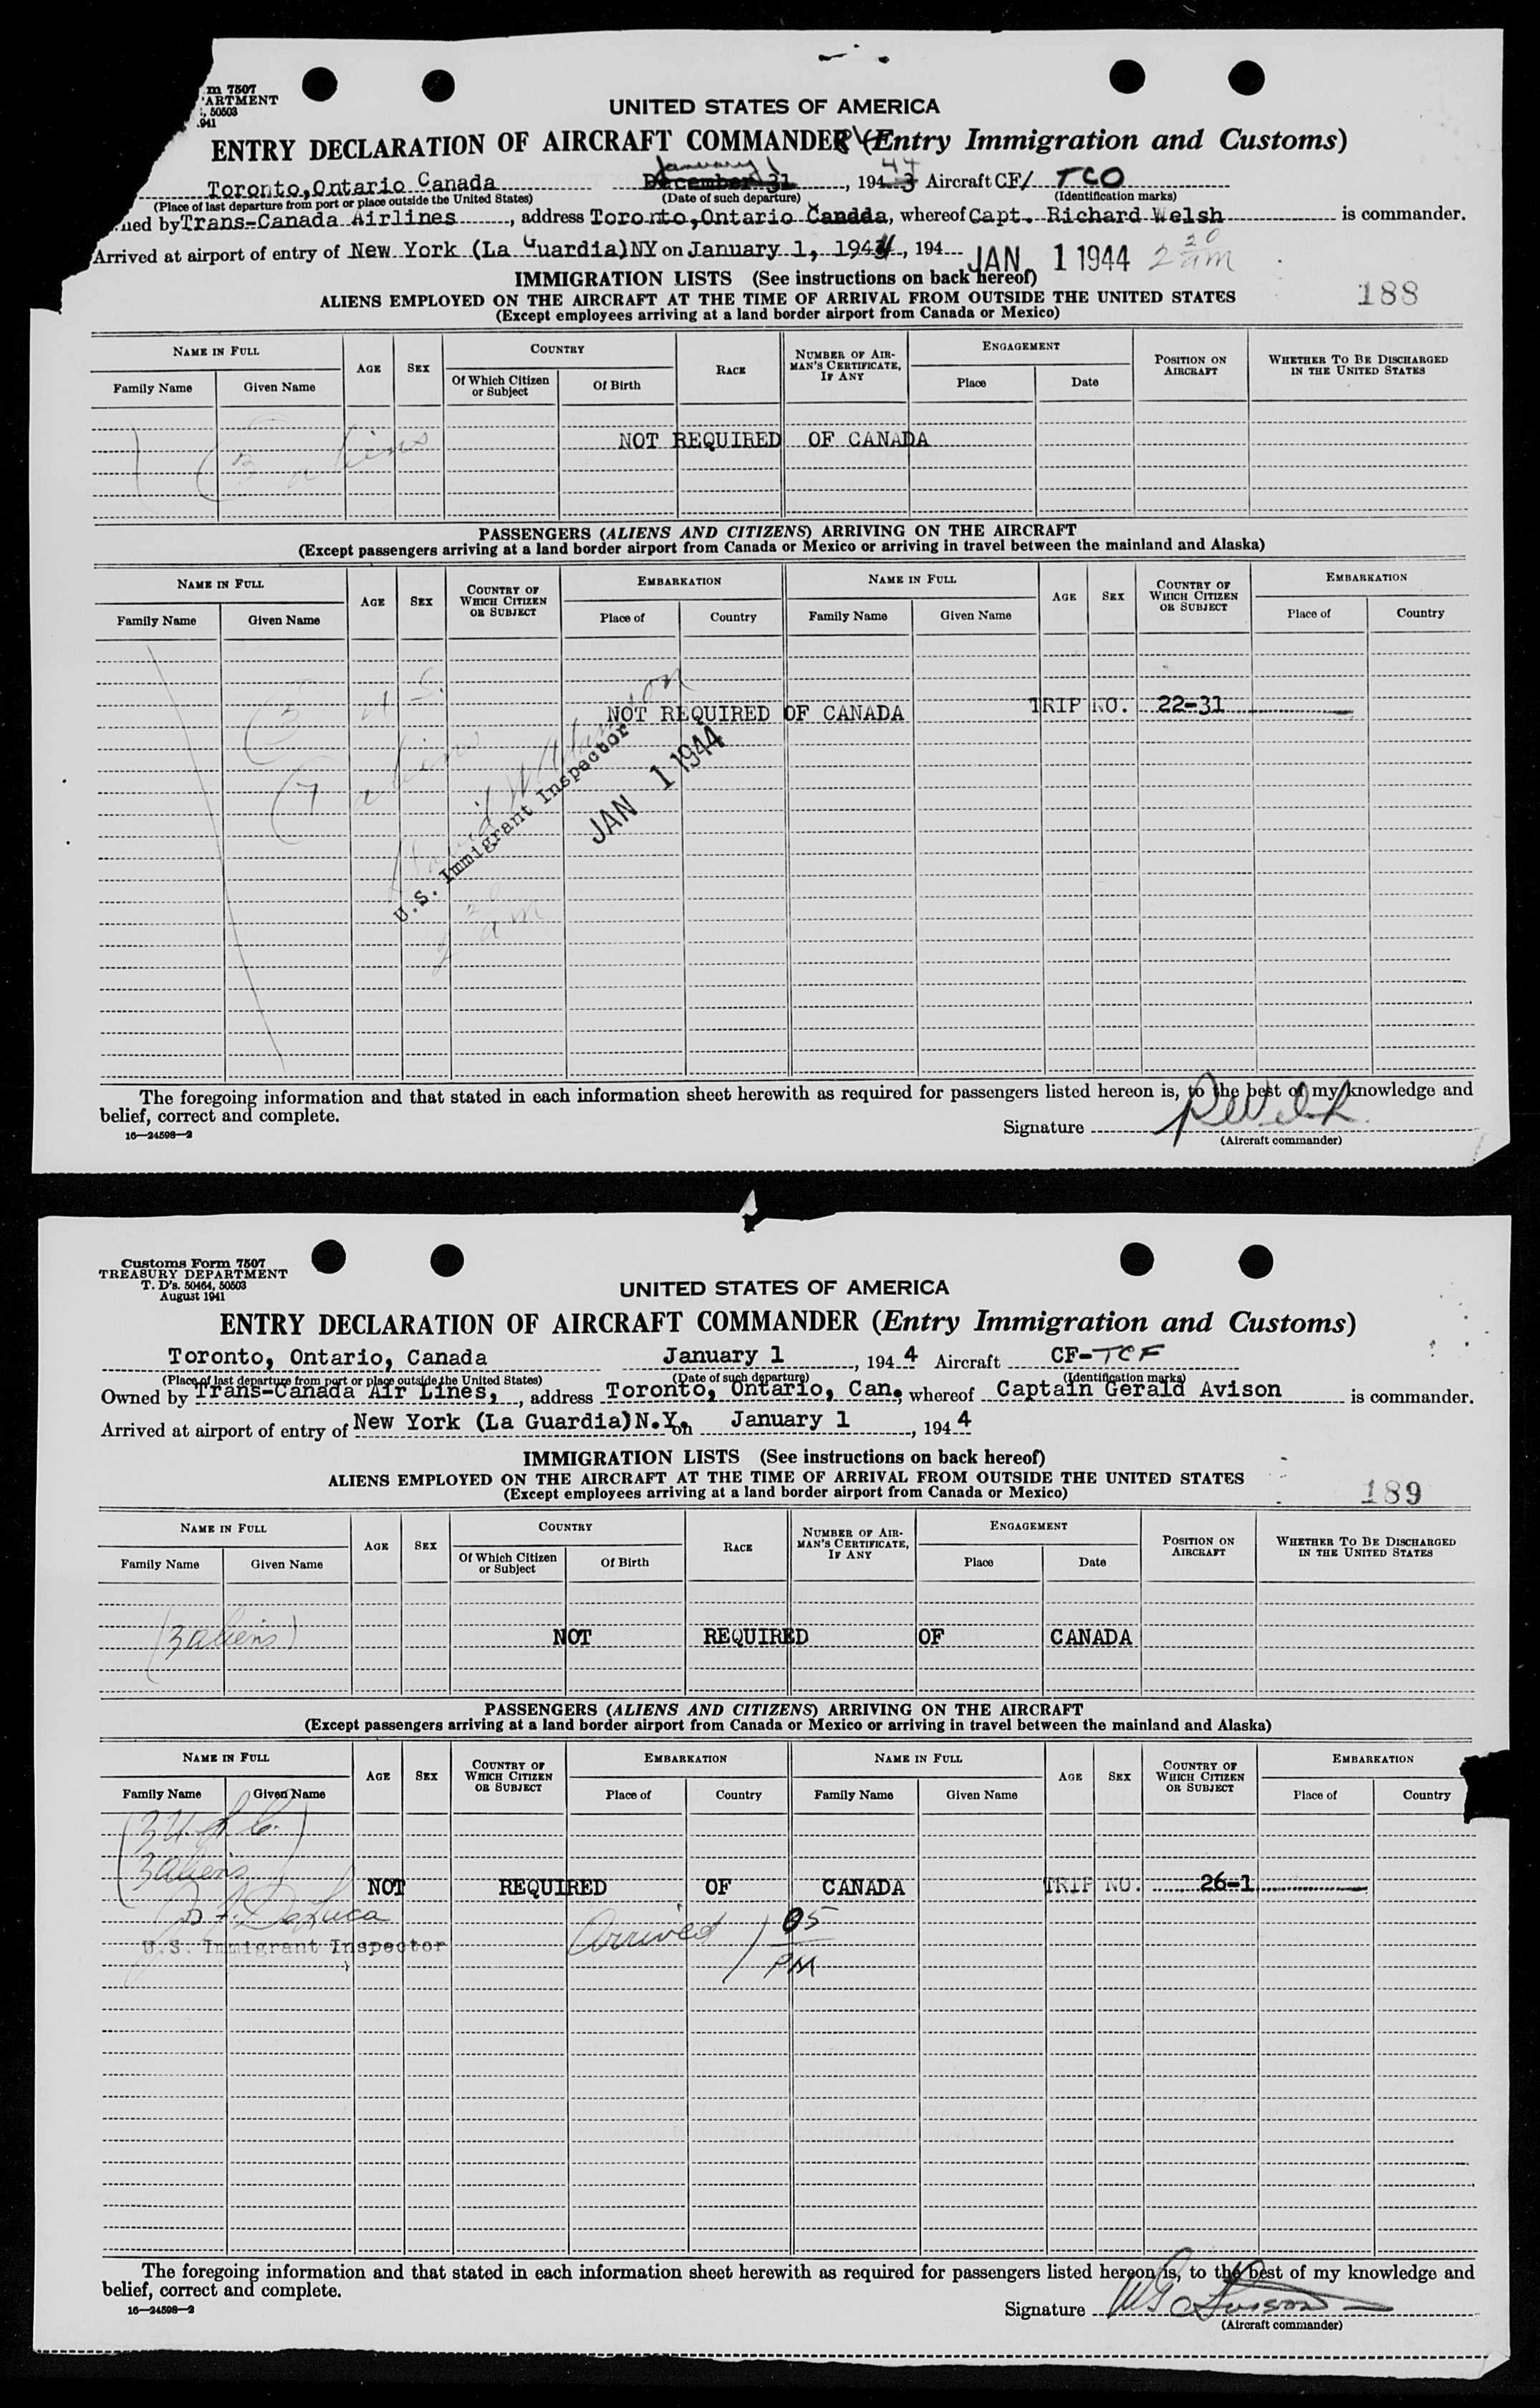 m 7507
ARTMENT
, 50503
.941
UNITED STATES OF AMERICA
ENTRY DECLARATION OF AIRCRAFT COMMANDER (Entry Immigration and Customs)
Toronto,Ontario Canada January 1 December 31, 194 3 44 Aircraft CF/ TCO
(Place of last departure from port or place outside the United States) (Date of such departure) (Identification marks)
ned by Trans-Canada Airlines, address Toronto,Ontario Canada, whereof Capt. Richard Welsh is commander.
Arrived at airport of entry of New York (La Guardia)NY on January 1, 1944, 194 JAN 1 1944 2 20 am
IMMIGRATION LISTS (See instructions on back hereof)
ALIENS EMPLOYED ON THE AIRCRAFT AT THE TIME OF ARRIVAL FROM OUTSIDE THE UNITED STATES 188
(Except employees arriving at a land border airport from Canada or Mexico)
NAME IN FULL AGE SEX COUNTRY RACE NUMBER OF AIRMAN'S CERTIFICATE, IF ANY ENGAGEMENT POSITION ON AIRCRAFT WHETHER TO BE DISCHARGED IN THE UNITED STATES
Family Name Given Name Of Which Citizen or Subject Of Birth Place Date
(3 aliens NOT REQUIRED OF CANADA
PASSENGERS (ALIENS AND CITIZENS) ARRIVING ON THE AIRCRAFT
(Except passengers arriving at a land border airport from Canada or Mexico or arriving in travel between the mainland and Alaska)
NAME IN FULL AGE SEX COUNTRY OF WHICH CITIZEN OR SUBJECT EMBARKATION NAME IN FULL AGE SEX COUNTRY OF WHICH CITIZEN OR SUBJECT EMBARKATION
Family Name Given Name Place of Country Family Name Given Name Place of Country
(3 U.S.
NOT REQUIRED OF CANADA TRIP NO. 22-31
(7 aliens
U.S. Immigrant Inspector
JAN 1 1944
2 20 am
The foregoing information and that stated in each information sheet herewith as required for passengers listed hereon is, to the best of my knowledge and
belief, correct and complete.
16—24598—2
Signature R Welsh
(Aircraft commander)
Customs Form 7507
TREASURY DEPARTMENT
T. D's. 50464, 50503
August 1941
UNITED STATES OF AMERICA
ENTRY DECLARATION OF AIRCRAFT COMMANDER (Entry Immigration and Customs)
Toronto, Ontario, Canada January 1, 194 4 Aircraft CF-TCF
(Place of last departure from port or place outside the United States) (Date of such departure) (Identification marks)
Owned by Trans-Canada Air Lines, , address Toronto, Ontario, Can, whereof Captain Gerald Avison is commander.
Arrived at airport of entry of New York (La Guardia)N.Y. on January 1, 194 4
IMMIGRATION LISTS (See instructions on back hereof)
ALIENS EMPLOYED ON THE AIRCRAFT AT THE TIME OF ARRIVAL FROM OUTSIDE THE UNITED STATES
(Except employees arriving at a land border airport from Canada or Mexico) 189
NAME IN FULL AGE SEX COUNTRY RACE NUMBER OF AIRMAN'S CERTIFICATE, IF ANY ENGAGEMENT POSITION ON AIRCRAFT WHETHER TO BE DISCHARGED IN THE UNITED STATES
Family Name Given Name Of Which Citizen or Subject Of Birth Place Date
(3 aliens) NOT REQUIRED OF CANADA
PASSENGERS (ALIENS AND CITIZENS) ARRIVING ON THE AIRCRAFT
(Except passengers arriving at a land border airport from Canada or Mexico or arriving in travel between the mainland and Alaska)
NAME IN FULL AGE SEX COUNTRY OF WHICH CITIZEN OR SUBJECT EMBARKATION NAME IN FULL AGE SEX COUNTRY OF WHICH CITIZEN OR SUBJECT EMBARKATION
Family Name Given Name Place of Country Family Name Given Name Place of Country
3 aliens
NOT REQUIRED OF CANADA TRIP NO. 26-1
DeLuca
U.S. Immigrant Inspector
Arrived 1 05 PM
The foregoing information and that stated in each information sheet herewith as required for passengers listed hereon is, to the best of my knowledge and
belief, correct and complete.
16—24598—2
Signature W G Avison
(Aircraft commander)